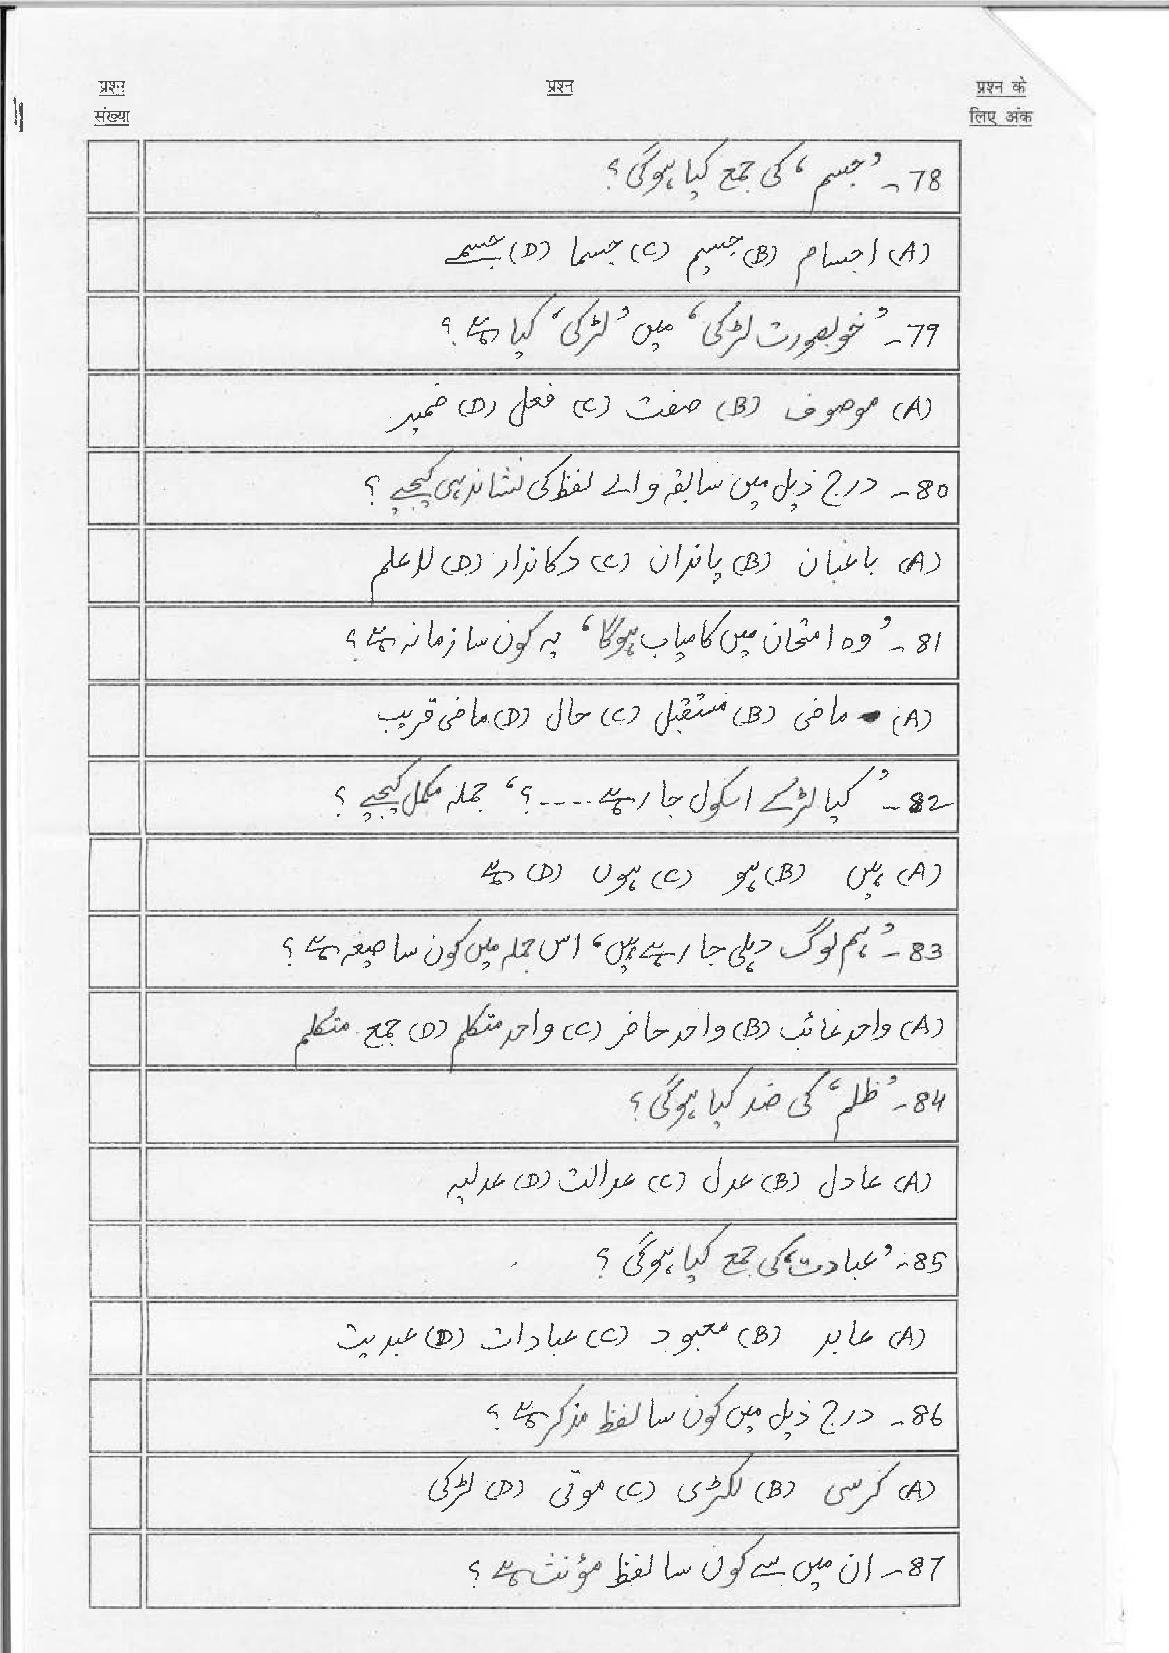 प्रश्न संख्या
प्रश्न
प्रश्न के लिए अंक
78۔ ’جسم‘ کی جمع کیا ہوگی؟
(A) اجسام (B) جسیم (C) جسما (D) جسمے
79۔ ’خوبصورت لڑکی‘ میں ’لڑکی‘ کیا ہے؟
(A) موصوف (B) صفت (C) فعل (D) ضمیر
80۔ درج ذیل میں سابقہ والے لفظ کی نشاندہی کیجیے؟
(A) باغبان (B) پاندان (C) دکاندار (D) لاعلم
81۔ ’وہ امتحان میں کامیاب ہوگا‘ یہ کون سا زمانہ ہے؟
(A) ماضی (B) مستقبل (C) حال (D) ماضی قریب
82۔ ’کیا لڑکے اسکول جارہے ----؟‘ جملہ مکمل کیجیے؟
(A) ہیں (B) ہو (C) ہوں (D) ہے
83۔ ’ہم لوگ دہلی جارہے ہیں‘ اس جملہ میں کون سا صیغہ ہے؟
(A) واحد غائب (B) واحد حاضر (C) واحد متکلم (D) جمع متکلم
84۔ ’ظلم‘ کی ضد کیا ہوگی؟
(A) عادل (B) عدل (C) عدالت (D) عدلیہ
85۔ ’عبادت‘ کی جمع کیا ہوگی؟
(A) عابد (B) معبود (C) عبادات (D) عبدیت
86۔ درج ذیل میں کون سا لفظ مذکر ہے؟
(A) کرسی (B) لکڑی (C) موتی (D) لڑکی
87۔ ان میں سے کون سا لفظ مؤنث ہے؟